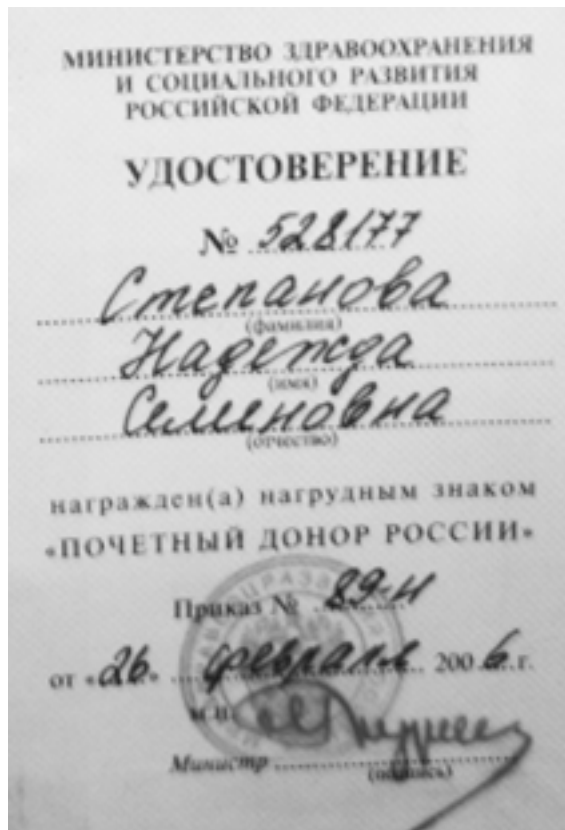 МИНИСТЕРСТВО ЗДРАВООХРАНЕНИЯ
И СОЦИАЛЬНОГО РАЗВИТИЯ
РОССИЙСКОЙ ФЕДЕРАЦИИ
УДОСТОВЕРЕНИЕ
№ 528177
Степанова
(фамилия)
Надежда
(имя)
Семеновна
(отчество)
награжден(а) нагрудным знаком
«ПОЧЕТНЫЙ ДОНОР РОССИИ»
Приказ № 89-н
от «26» февраля 2006 г.
М.П.
Министр
(подпись)